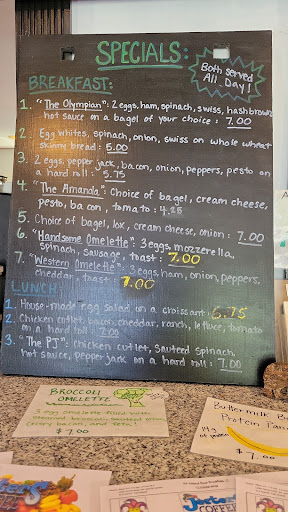 SPECIALS:
Both served
All Day!
BREAKFAST:
1. "The Olympian": 2 eggs, ham, spinach, swiss, hashbrown
hot sauce on a bagel of your choice: 7.00
2. Egg whites, spinach, onion, swiss on whole wheat
skinny bread: 5.00
3. 2 eggs, pepper jack, bacon, onion, peppers, pesto on
a hard roll: 5.75
4. "The Amanda": Choice of bagel, cream cheese,
pesto, bacon, tomato: 4.25
5. Choice of bagel, lox, cream cheese, onion: 7.00
6. "Handsome Omelette": 3 eggs, mozzerella,
spinach, sausage, toast: 7.00
7. "Western Omelette": 3 eggs, ham, onion, peppers,
cheddar, toast: 7.00
LUNCH:
1. House-made egg salad on a croissant: 6.75
2. Chicken cutlet, bacon, cheddar, ranch, lettuce, tomato
on a hard roll: 7.00
3. "The PJ": chicken cutlet, sauteed spinach,
hot sauce, pepper jack on a hard roll: 7.00
BROCCOLI
OMELETTE
3 egg omelette filled with
steamed broccoli, sauteed onion,
crispy bacon, and feta!
$7.00
Buttermilk B
Protein Pan
14g
of protein
$7.0